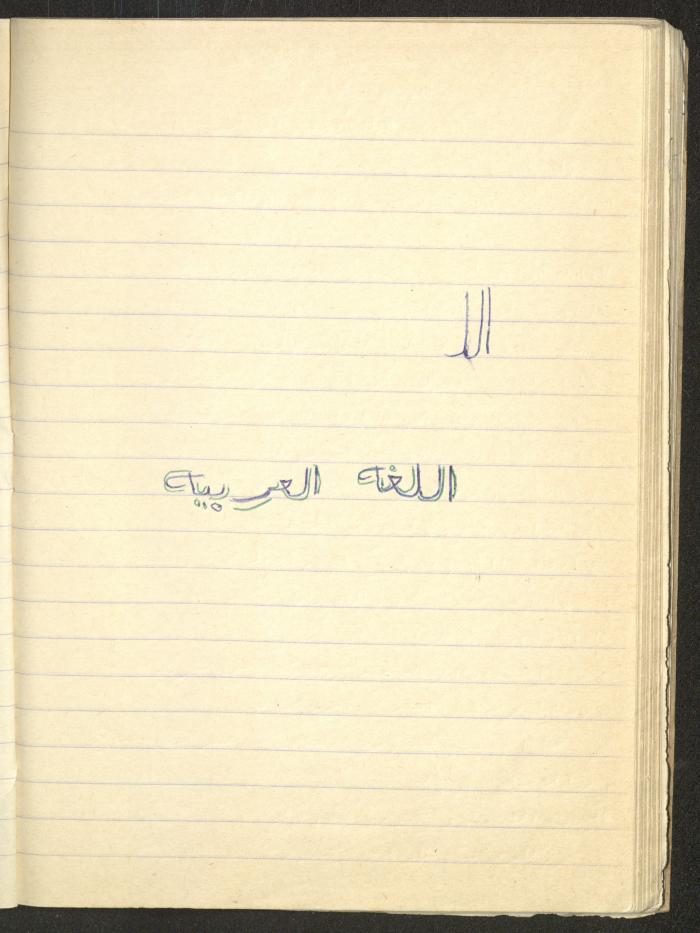 الل
اللغه العربيه